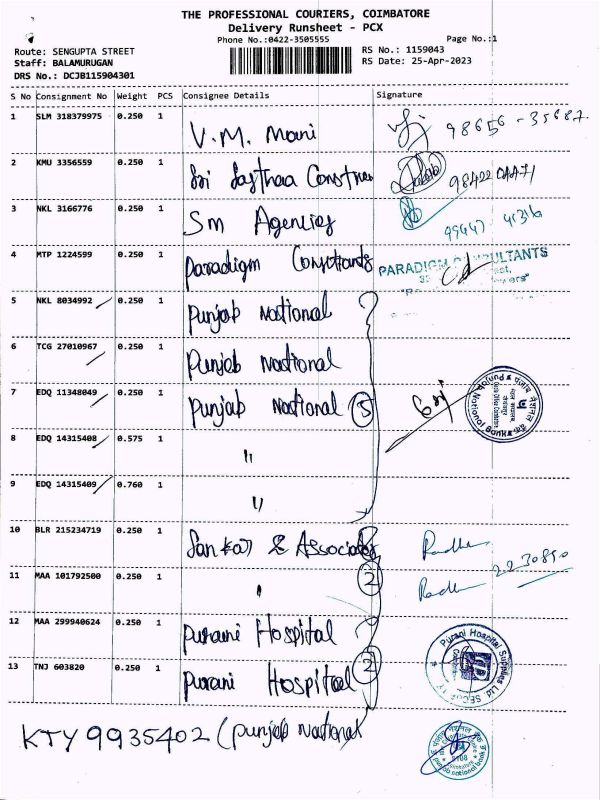 THE PROFESSIONAL COURIERS, COIMBATORE
Delivery Runsheet - PCX
Phone No.:0422-3505555 Page No.:1
Route: SENGUPTA STREET RS No.: 1159043
Staff: BALAMURUGAN RS Date: 25-Apr-2023
DRS No.: DCJB115904301
S No Consignment No Weight PCS Consignee Details Signature
1 SLM 318379975 0.250 1 V.M. Mani 98656-35687
2 KMU 3356559 0.250 1 Sri Sasthaa
3 NKL 3166776 0.250 1 Sm Agencies
4 MTP 1224599 0.250 1 Paradigm PARADIGM CONSULTANTS
5 NKL 8034992 0.250 1 Punjab National
6 TCG 27010967 0.250 1 Punjab National
7 EDQ 11348049 0.250 1 Punjab National 5
8 EDQ 14315408 0.575 1 "
9 EDQ 14315409 0.760 1 "
10 BLR 215234719 0.250 1 Sankar & Associates
11 MAA 101792500 0.250 1 " 2
12 MAA 299940624 0.250 1 Purani Hospital
13 TNJ 603820 0.250 1 Purani Hospital 2
Purani Hospital Supplies Ltd
KTY 9935402 (Punjab National